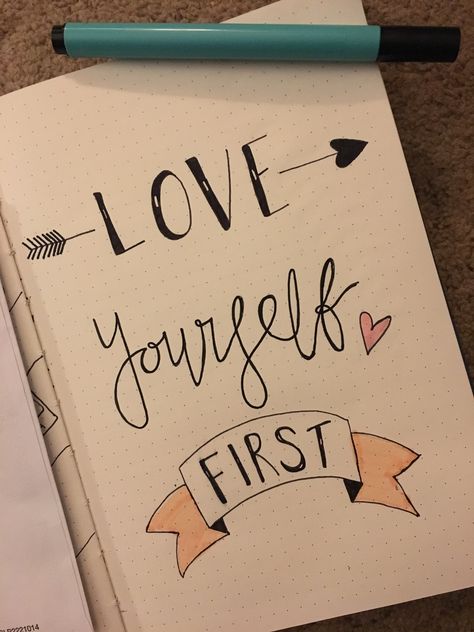 LOVE
yourself
FIRST